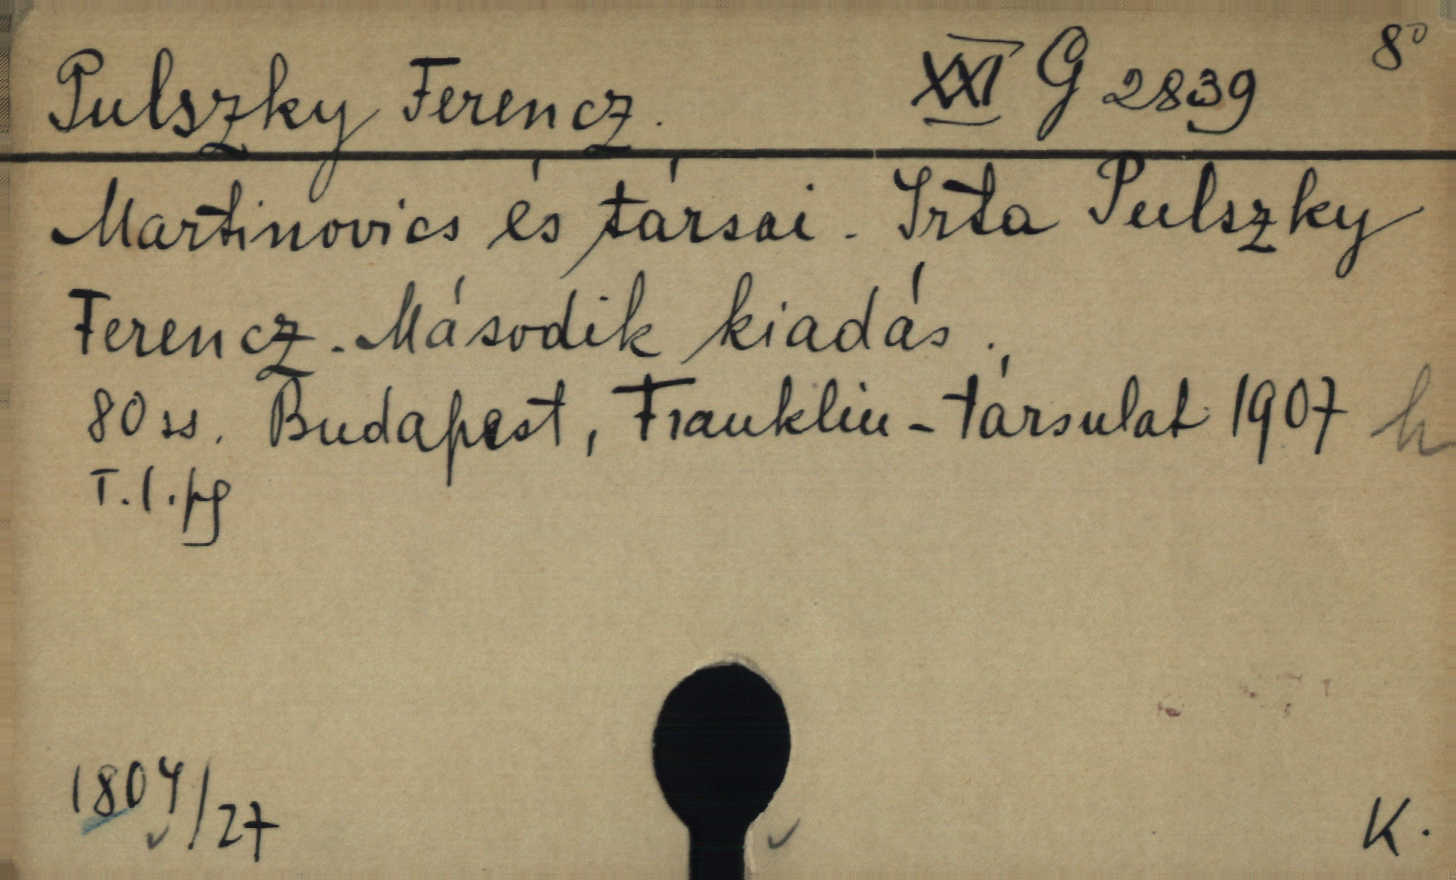 Pulszky Ferencz. XXI G 2839 8°
Martinovics és társai. Irta Pulszky
Ferencz. Második kiadás.
80 ss. Budapest, Franklin-társulat 1907 h
T. l. pg
1804/27
K.